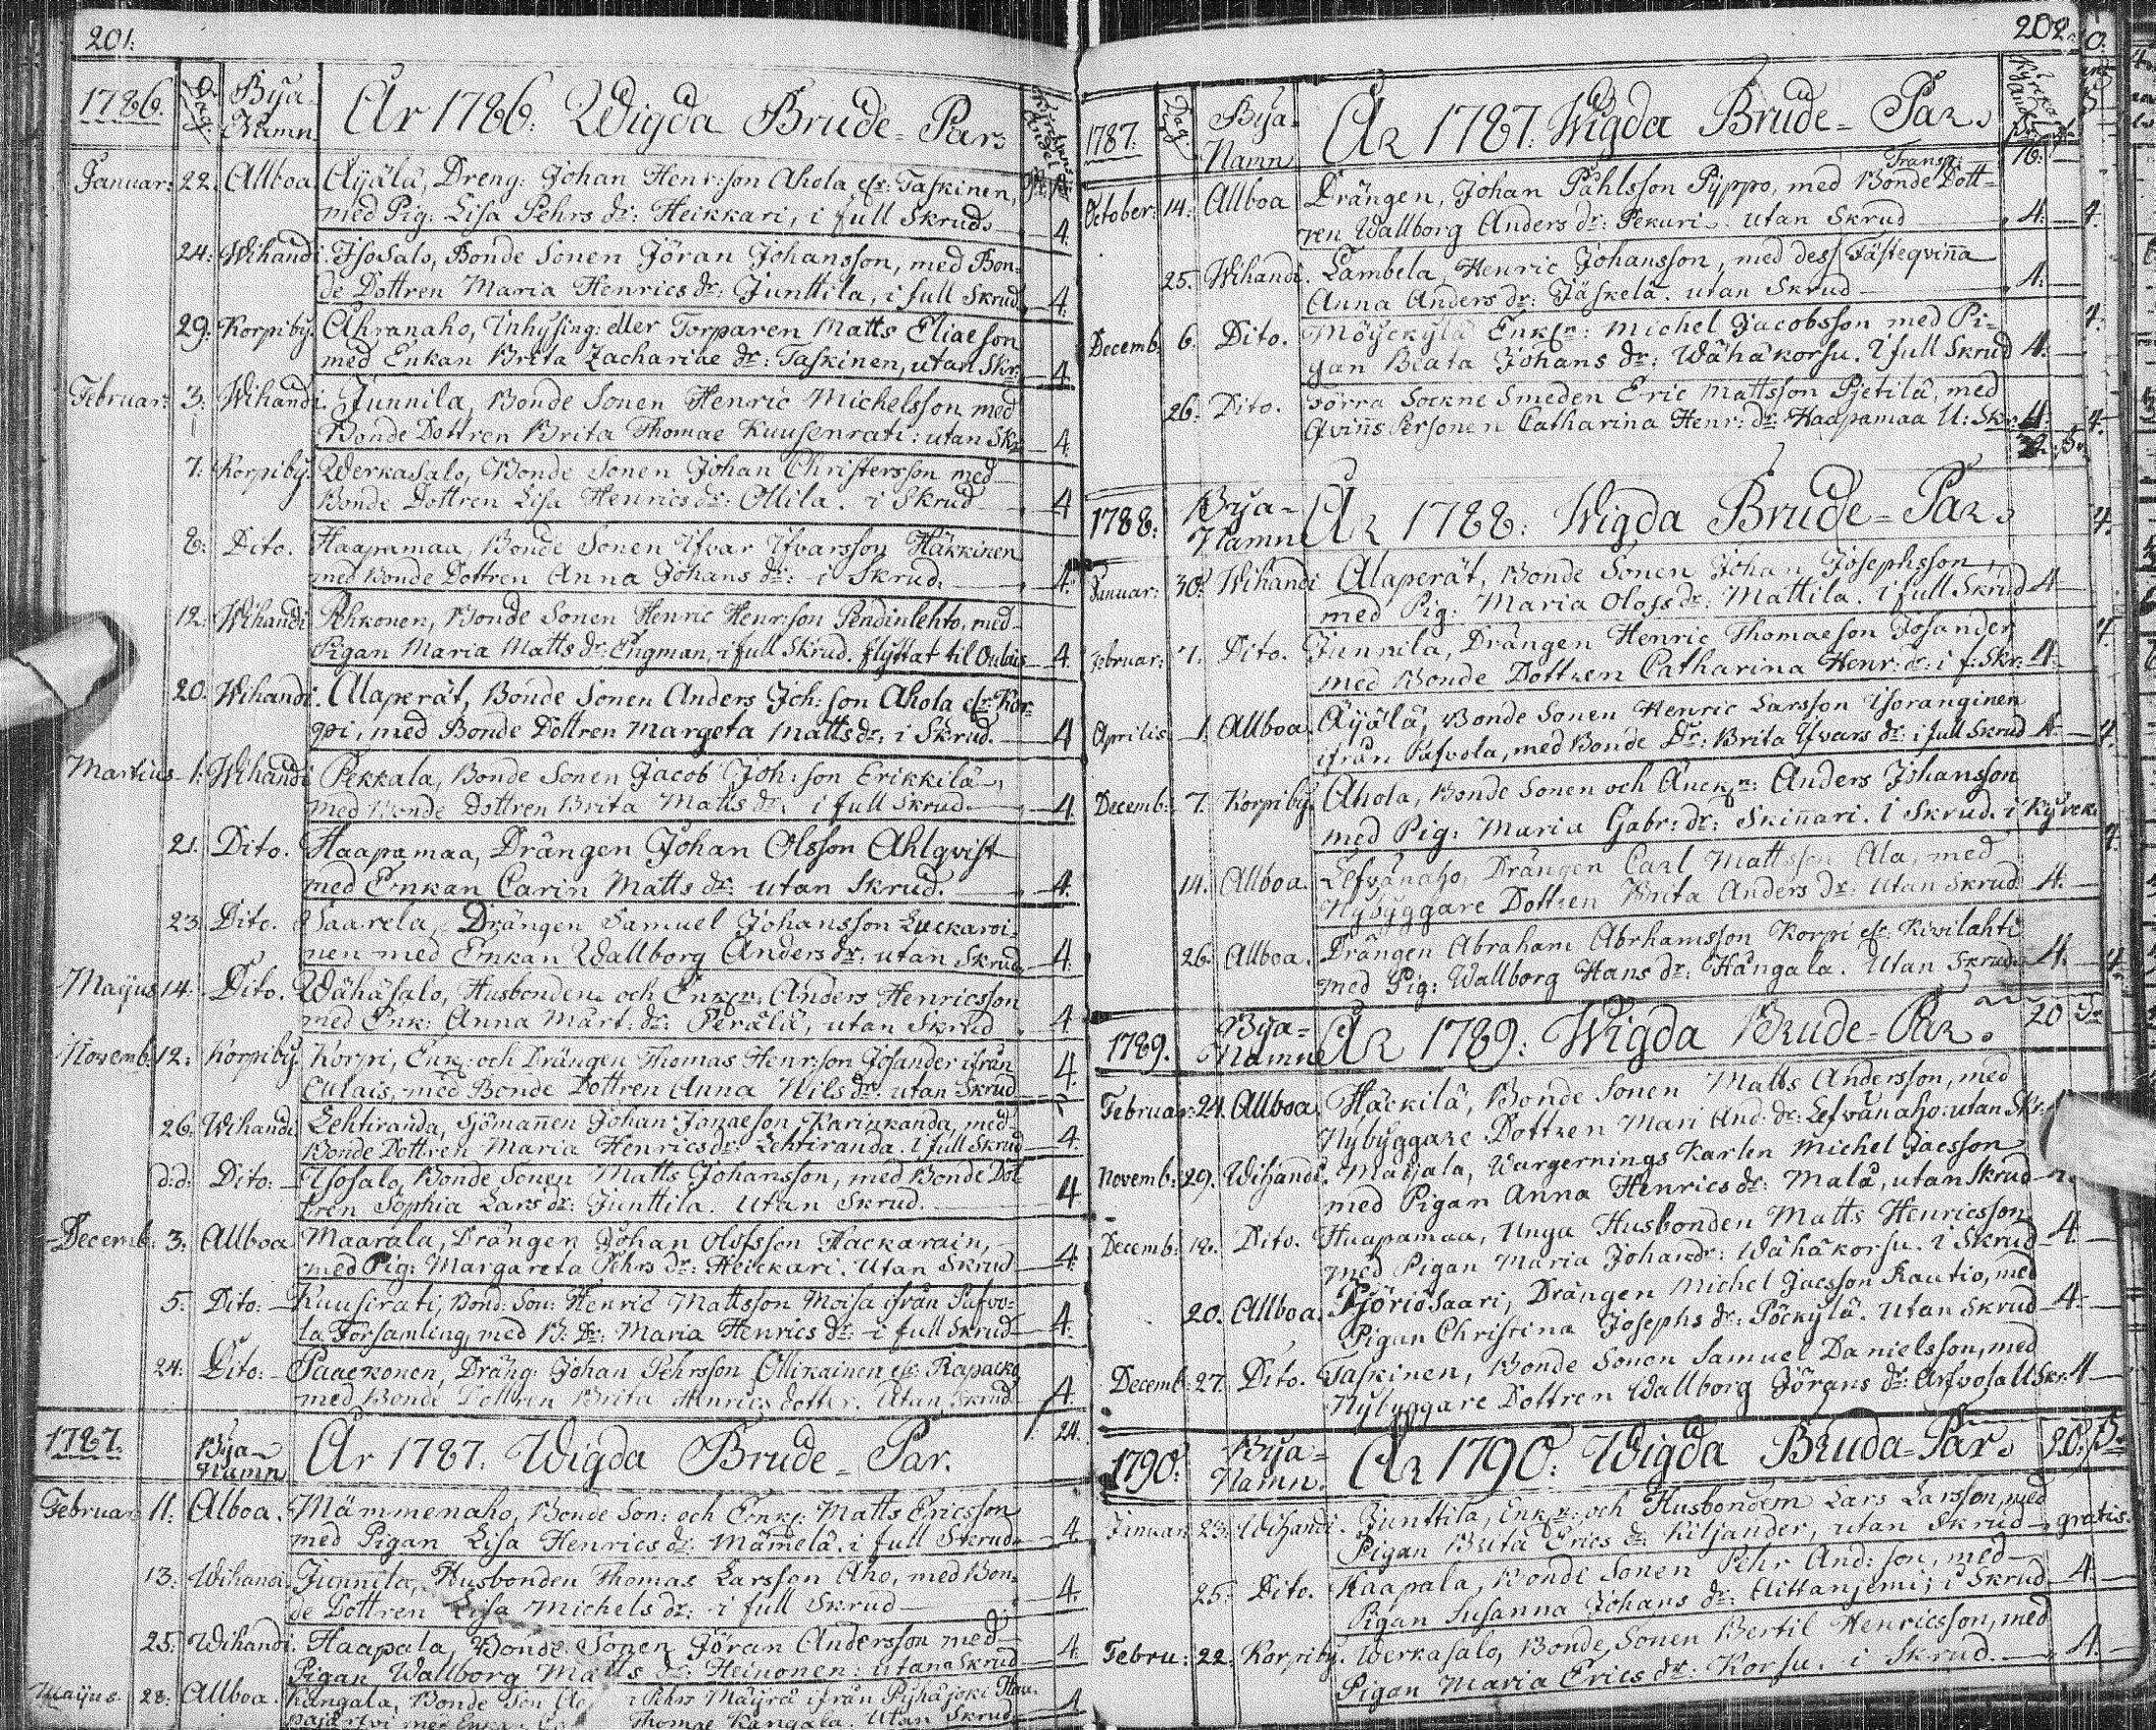 201.
1786. Dag. Bya-Namn. År 1786: Wigda Brude-Par.
Januar: 22. Allboa Äijälä, Dreng: Johan Henr:son Ahola eft: Taskinen,
med Pig: Lisa Pehrs dr: Heikkari, i full Skrud. 4.
24: Wihandi. Isosalo, Bonde Sonen Jöran Johansson, med Bon-
de Dottren Maria Henrics dr: Junttila, i full Skrud. 4.
29: Korpiby. Ahranaho, Inhysing: eller Torparen Matts Eliaeson
med Enkan Brita Zachariae dr: Taskinen, utan Skr: 4
Februar: 3: Wihandi. Junnila, Bonde Sonen Henric Michelsson med
Bonde Dottren Brita Thomae Kuusenrati: utan Skr: 4.
7: Korpiby. Werkasalo, Bonde Sonen Johan Christersson med
Bonde Dottren Lisa Henrics dr: Ollila. i Skrud 4
8: Dito. Haapamaa, Bonde Sonen Ifvar Ifvarsson Häkkinen
med Bonde Dottren Anna Johans dr: i Skrud. 4.
12: Wihandi Pehkonen, Bonde Sonen Henric Henr:son Pendinlehto, med
Pigan Maria Matts dr: Engman, i full Skrud. flyttat til Oulais 4.
20. Wihandi. Alaperät, Bonde Sonen Anders Joh:son Ahola eft: Kor-
pi, med Bonde Dottren Margeta Matts dr: i Skrud. 4
Martius 1: Wihandi Pekkala, Bonde Sonen Jacob Joh:son Erikkilä,
med Bonde Dottren Brita Matts dr: i full Skrud. 4.
21. Dito. Haapamaa, Drängen Johan Olsson Ahlqvist
med Enkan Carin Matts dr: utan Skrud. 4.
23: Dito. Saarela, Drängen Samuel Johansson Luckaroi-
nen med Enkan Wallborg Anders dr: utan Skrud. 4.
Maijus 14: Dito. Wähäsalo, Husbonden och Enkl: Anders Henricsson
med Enk: Anna Mårt: dr: Perälä, utan Skrud 4.
Novemb: 12: Korpiby. Korpi, Enkl: och Drängen Thomas Henr:son Josander ifrån
Oulais, med Bonde Dottren Anna Nils dr: utan Skrud 4.
26: Wihandi Lehtiranda, Sjömannen Johan Jonaeson Karinkanda, med
Bonde Dottren Maria Henrics dr: Lehtiranda. i full Skrud 4.
d:d: Dito: Isosalo, Bonde Sonen Matts Johansson, med Bonde Dot-
tren Sophia Lars dr: Junttila. Utan Skrud. 4
Decemb: 3: Allboa Maarala, Drängen Johan Olofsson Hackarain,
med Pig: Margareta Pehrs dr: Heickari. Utan Skrud 4.
5: Dito: Kuusirati, Bond: Son: Henric Mattsson Moisa ifrån Pafvo-
la Församling, med B: Dr: Maria Henrics dr: i full Skrud 4.
24: Dito: Paaekonen, Dräng: Johan Pehrsson Ollikainen eft: Rapacko
med Bonde Dottren Brita Henrics dotter. Utan Skrud 4
1787. Bya-Namn År 1787. Wigda Brude-Par.
Februar: 11: Alboa. Mämmenaho, Bonde Son: och Enkl: Matts Ericsson
med Pigan Lisa Henrics dr: Mämelä. i full Skrud. 4
13: Wihandi. Junnila, Husbonden Thomas Larsson Aho, med Bon-
de Dottren Lisa Michels dr: i full Skrud 4.
25: Wihandi. Haapala, Bonde Sonen Jöran Andersson med
Pigan Wallborg Matts dr: Heinonen: utan Skrud 4.
Maijus. 28: Allboa. Kangala, Bonde Son Pehrs Mäyrä ifrån Pyhäjoki
Thomae Kangala. Utan Skrud 4
202.
1787. Dag. Bya-Namn År 1787: Wigda Brude-Par.
Transp: 16:
October: 14: Allboa Drängen, Johan Påhlsson Pyppo, med Bonde Dott-
ren Wallborg Anders dr: Pekuri. utan Skrud 4.
25. Wihandi. Lambela, Henric Johansson, med dess Fästeqvinna
Anna Anders dr: Jäskelä. utan Skrud 4.
Decemb: 6. Dito. Möyckylä Enkl: Michel Jacobsson med Pi-
gan Beata Johans dr: Wähäkorsu. i full Skrud 4.
26: Dito. Förra Sockne Smeden Eric Mattsson Pietilä, med
Qvinns Personen Catharina Henr: dr: Haapamaa U: Skr: 4.
1788: Bya-Namn År 1788: Wigda Brude-Par.
Januar: 30: Wihandi Alaperät, Bonde Sonen Johan Josephsson,
med Pig: Maria Olofs dr: Mattila. i full Skrud 4
Februar: 7. Dito. Junnila, Drängen Henric Thomaeson Josander
med Bonde Dottren Catharina Henr: dr: i f: Skr: 4.
Aprilis 1. Allboa. Äijälä, Bonde Sonen Henric Larsson Isoranginen
ifrån Pafvola, med Bonde Dr: Brita Ifvars dr: i full Skrud 4
Decemb: 7. Korpiby Ahola, Bonde Sonen och Änckl: Anders Johansson
med Pig: Maria Gabr: dr: Skinnari. i Skrud. i Kyrck:
14. Allboa. Lefvänaho, Drängen Carl Mattsson Ala, med
Nybyggare Dottren Brita Anders dr: Utan Skrud 4.
26. Allboa. Drängen Abraham Abrhamsson Korpi eft: Kivilahti
med Pig: Wallborg Hans dr: Hångala. Utan Skrud 4.
20
1789. Bya-Namn År 1789: Wigda Brude-Par.
Februar: 24. Allboa Häckilä, Bonde Sonen Matts Andersson, med
Nybyggare Dottren Mari And: dr: Lefvänaho: utan Skr:
Novemb: 29. Wihandi. Maijala, Wargernings Karlen Michel Jacsson
med Pigan Anna Henrics dr: Mala, utan Skrud
Decemb: 18. Dito. Haapamaa, Unga Husbonden Matts Henricsson
med Pigan Maria Johans dr: Wähäkorsu. i Skrud 4.
20. Allboa. Pjöriösaari, Drängen Michel Jacsson Rautio, med
Pigan Christina Josephs dr: Pöckylä. Utan Skrud 4.
Decemb: 27. Dito. Taskinen, Bonde Sonen Samuel Danielsson, med
Nybyggare Dottren Wallborg Jörans dr: Arfvola U Skr: 4
20.
1790. Bya-Namn. År 1790: Wigda Bruda-Par.
Januar: 23. Wihandi. Junttila, Enkl: och Husbonden Lars Larsson, med
Pigan Brita Erics dr: Kiljander, utan Skrud gratis.
25. Dito. Haapala, Bonde Sonen Pehr And:son, med
Pigan Susanna Johans dr: Aittanjemi, i Skrud 4.
Febru: 22. Korpiby. Werkasalo, Bonde Sonen Bertil Henricsson, med
Pigan Maria Erics dr: Korsu. i Skrud. 4.